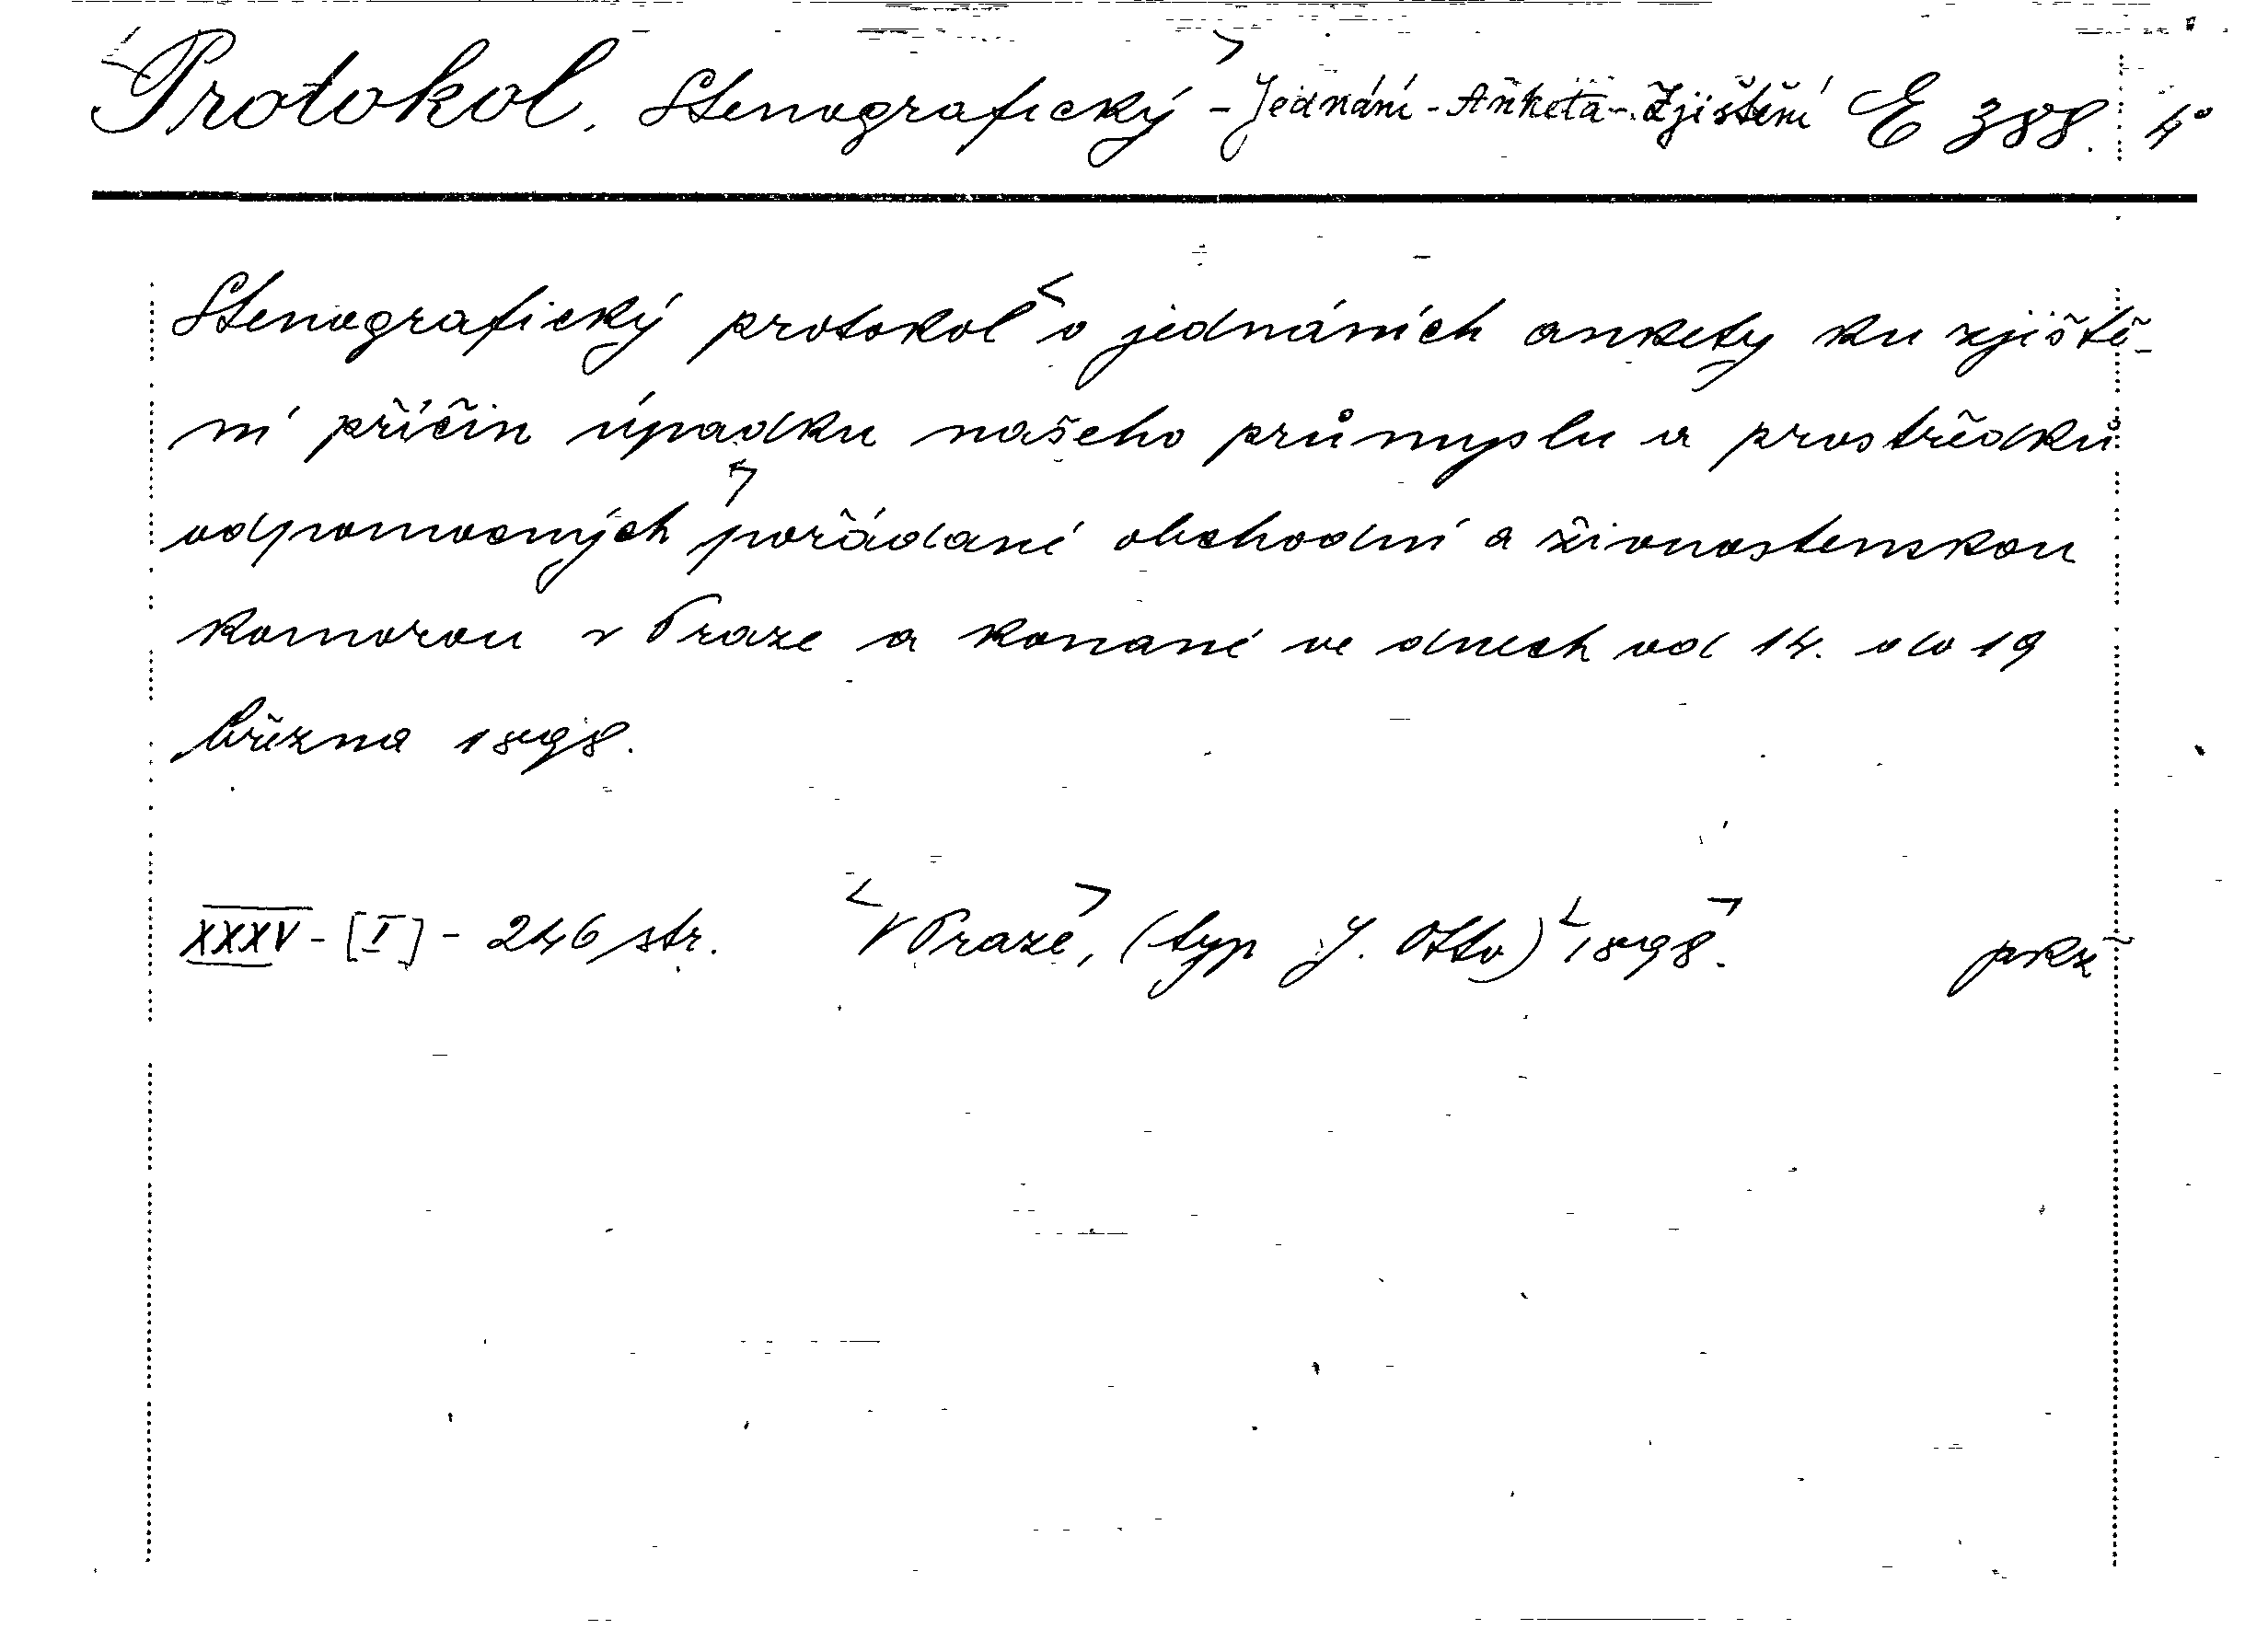 Protokol, Stenografický - Jednání - Anketa - Zjištění E 388. 4°
Stenografický protokol o jednáních ankety ku zjiště-
ní příčin úpadku našeho průmyslu a prostředků
odpomocných pořádané obchodní a živnostenskou
komorou v Praze a konané ve dnech od 14. do 19
března 1898.
XXXV - [I] - 246 str. V Praze, (typ J. Otto) 1898. prž